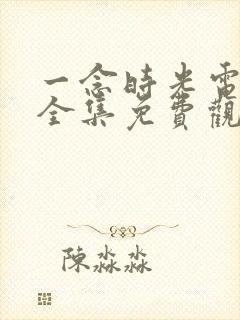 一念時光電
全集免費觀
陳淼淼